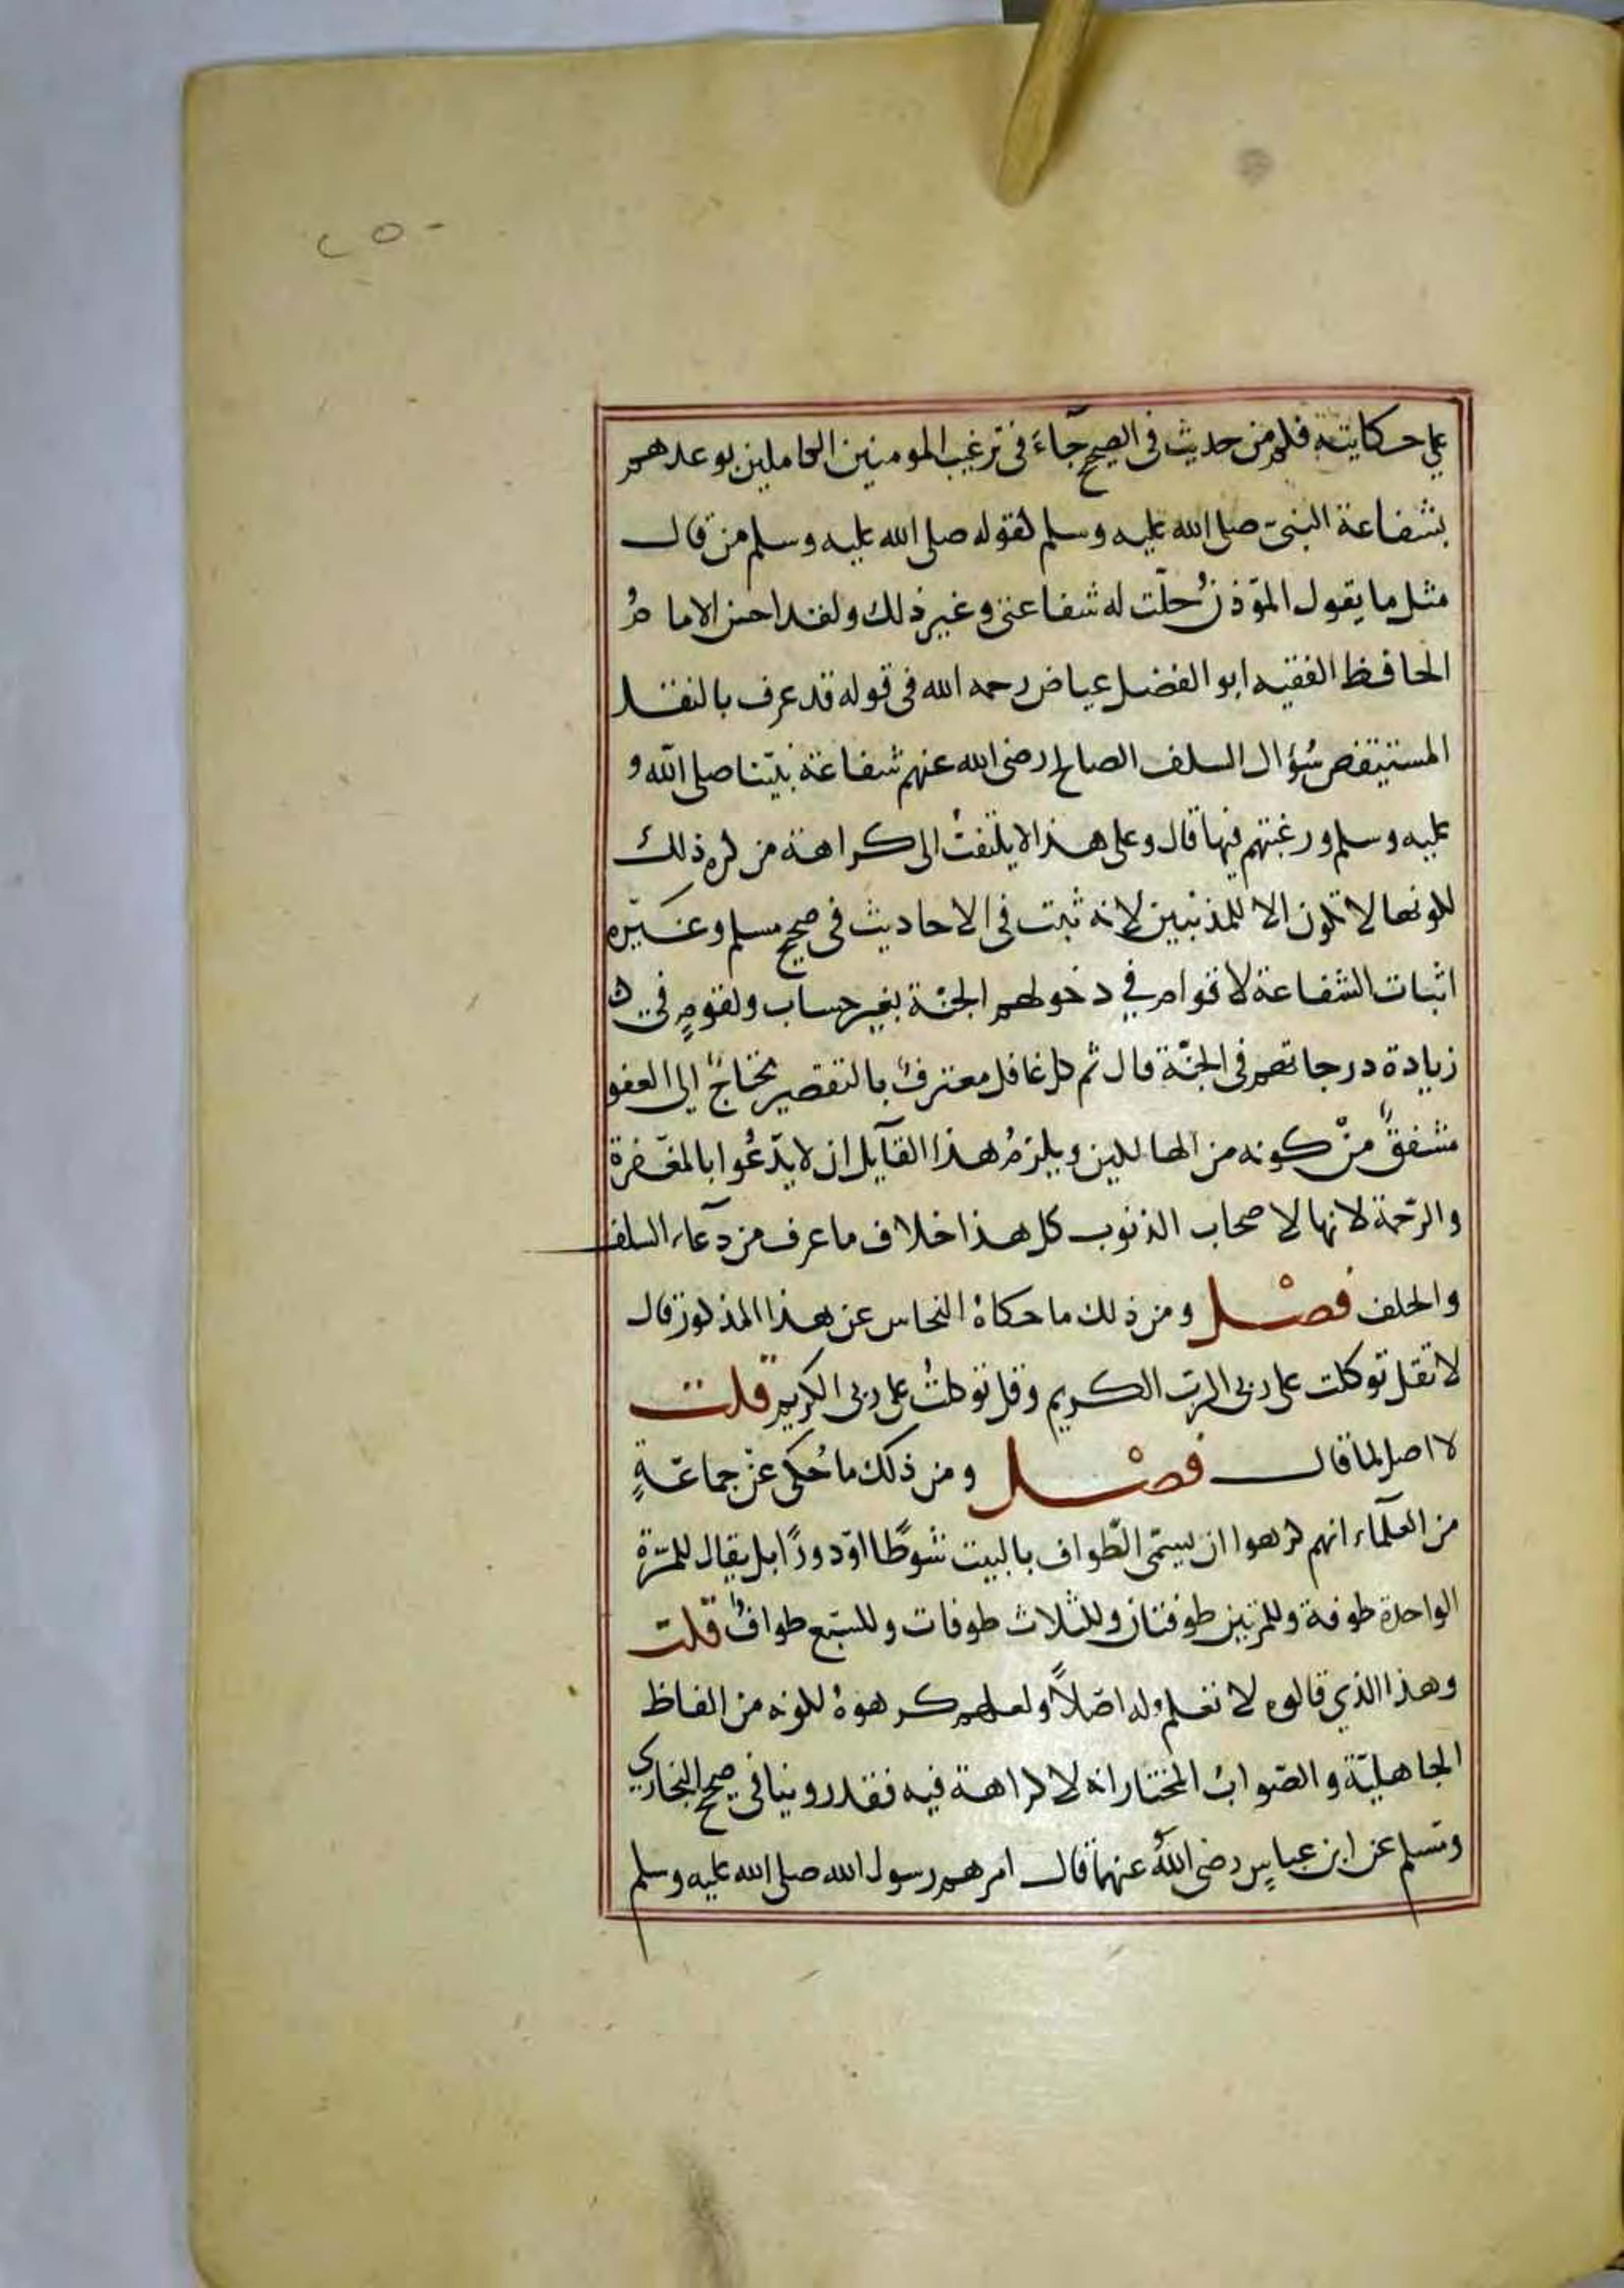 ٢٥٠
على حكايته فكم من حديث في الصحيح جاء في ترغيب المومنين الكاملين بوعدهم
بشفاعة النبيّ صلى الله عليه وسلم كقوله صلى الله عليه وسلم من قال
مثل ما يقول المؤذن حلّت له شفاعتي وغير ذلك ولقد احسن الامام
الحافظ الفقيه ابو الفضل عياض رحمه الله في قوله قد عرف بالنقل
المستفيض سُؤال السلف الصالح رضي الله عنهم شفاعة نبيّنا صلى الله و
عليه وسلم ورغبتهم فيها قال وعلى هذا لا يلتفتُ الى كراهة من كره ذلك
لكونها لا تكون الا للمذنبين لانه ثبت في الاحاديث في صحيح مسلم وغيره
اثبات الشفاعة لاقوام في دخولهم الجنّة بغير حساب ولقومٍ في
زيادة درجاتهم في الجنّة قال ثم كل غافل معترفٌ بالتقصير محتاجٌ الى العفو
مشفقٌ منْ كونه من الهالكين ويلزمُ هذا القآيل ان لا يدّعُوا بالمغفرة
والرحمة لانها لاصحاب الذنوب كل هذا خلاف ما عرف من دعآء السلف
والخلف فصْل ومن ذلك ما حكاهُ النحاس عن هذا المذكور قال
لا تقل توكلت على ربي الرب الكريم وقل توكلتُ على ربي الكريم قلت
لا اصل لما قال فصْل ومن ذلك ما حُكي عنْ جماعةٍ
من العلمآء انهم كرهوا ان يسمّى الطّواف بالبيت شوطًا او دورًا بل يقال للمرّة
الواحدة طوفة وللمرتين طوفتان وللثلاث طوفات وللسّبع طوافٌ قلت
وهذا الذي قالوه لا نعلم له اصْلاً ولعلهم كرهوهُ لكونه من الفاظ
الجاهليّة والصّوابُ المختار انه لا كراهة فيه فقد روينا في صحيح البخاري
ومسلم عن ابن عباسٍ رضي اللهُ عنهما قال امرهم رسول الله صلى الله عليه وسلم